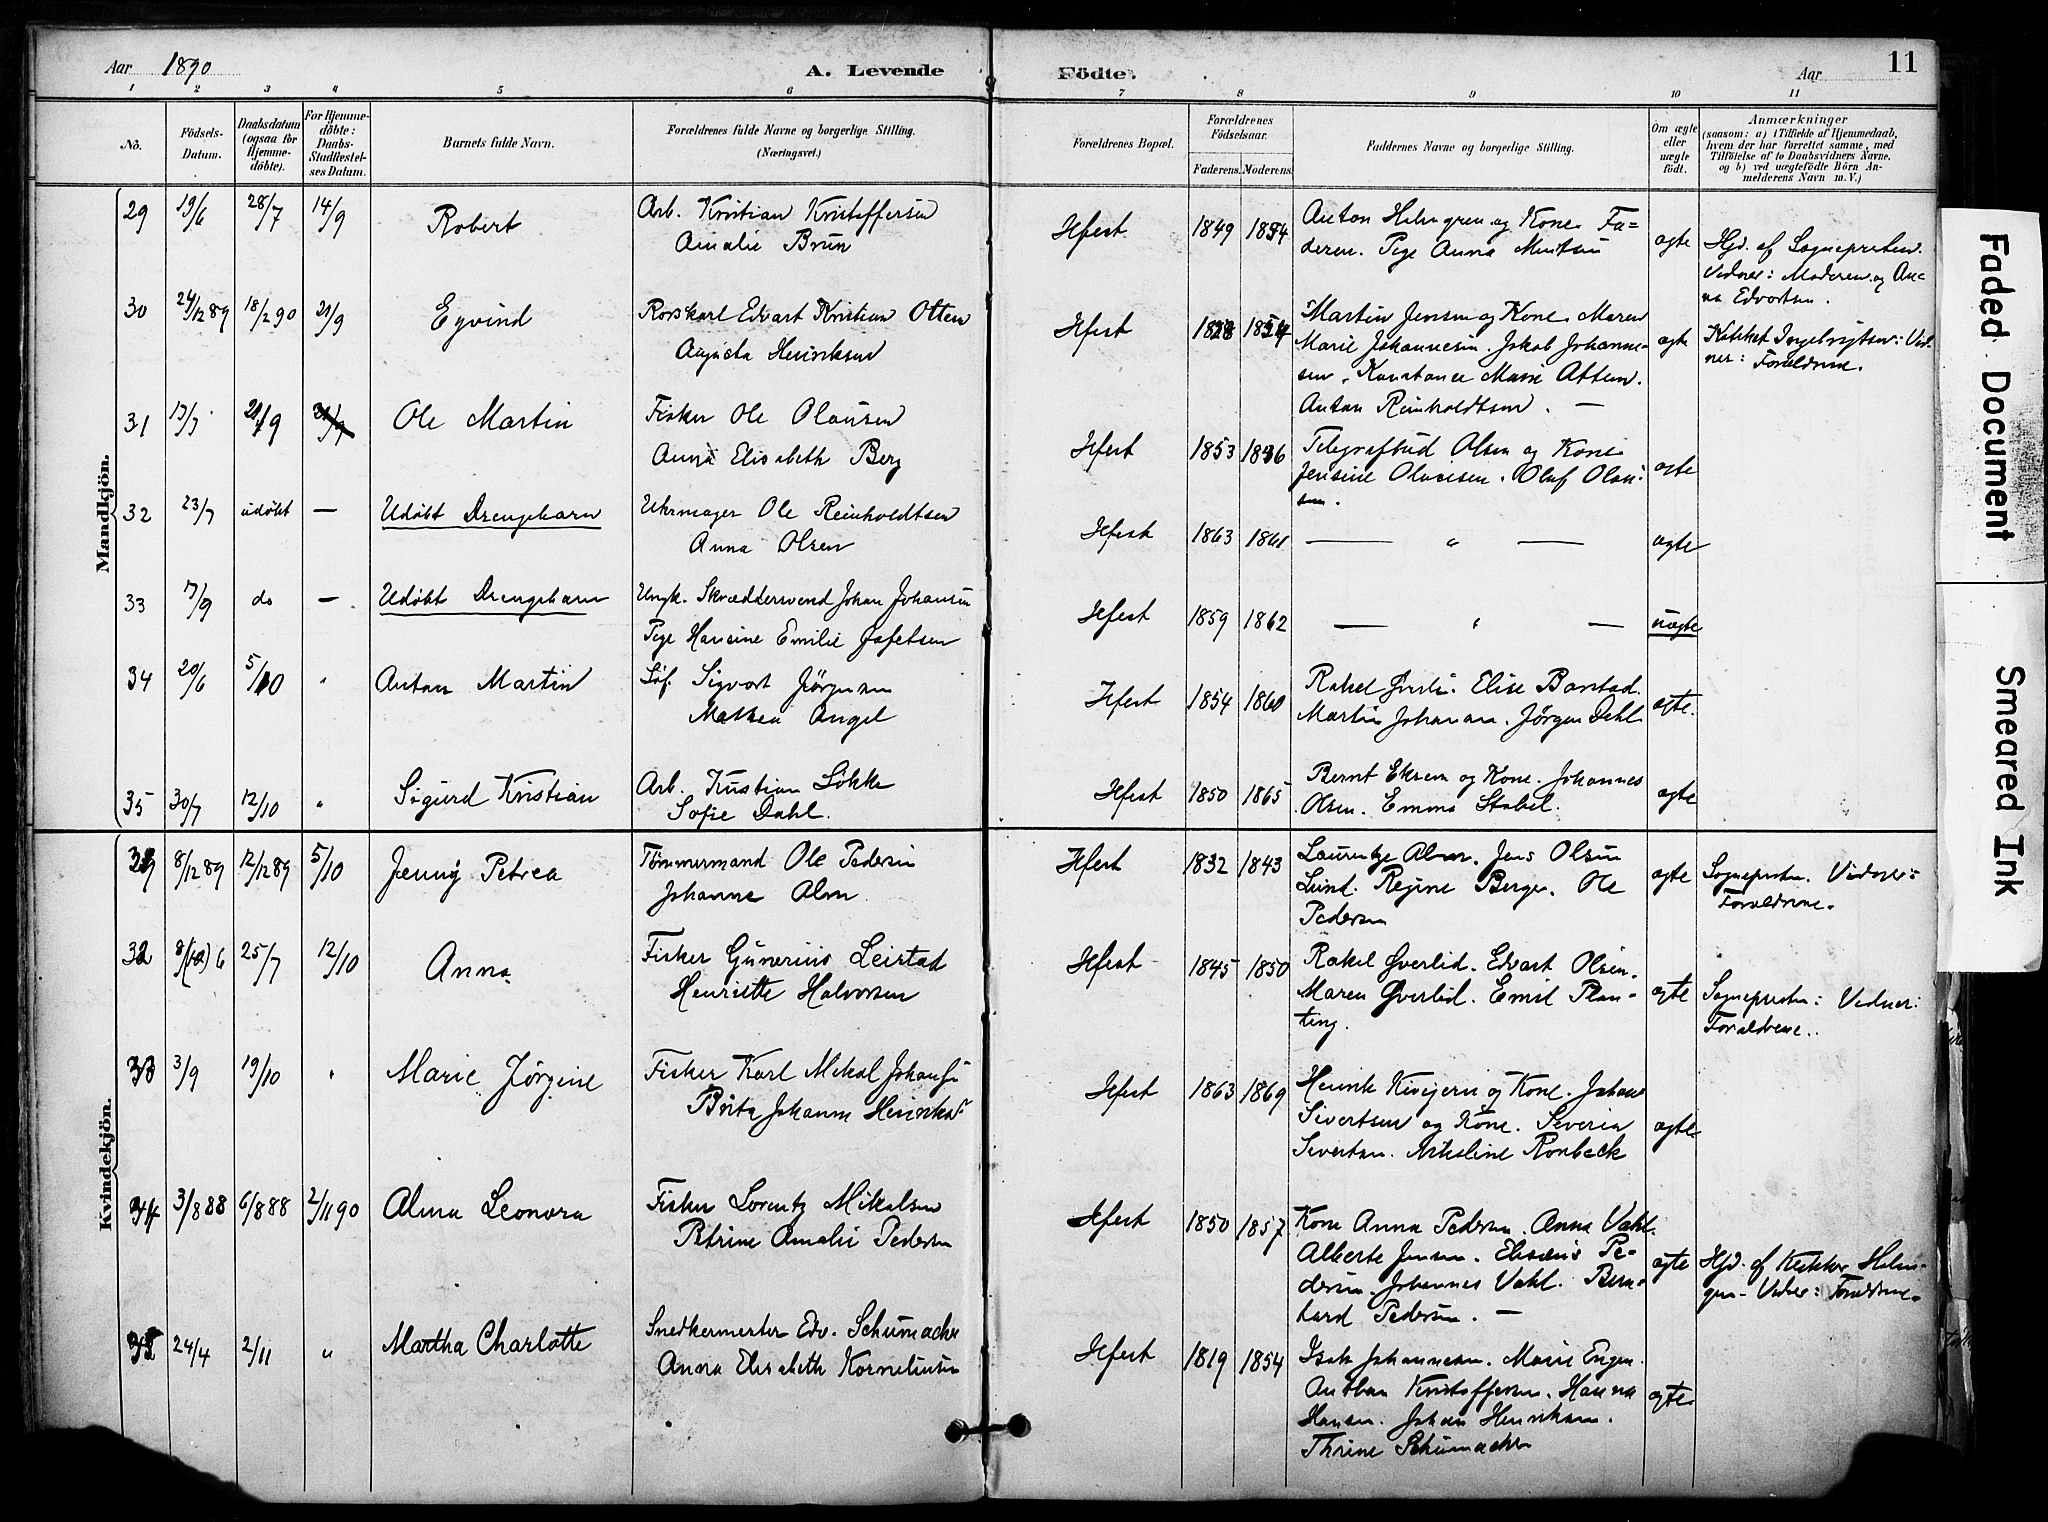 Aar 1890 A. Levende Födte. Aar 11
1 2 3 4 5 6 7 8 9 10 11
No. Födsels-Datum. Daabsdatum (ogsaa for Hjemmedöbte). For Hjemmedöbte: Daabs-Stadfæstelses Datum. Barnets fulde Navn. Forældrenes fulde Navne og borgerlige Stilling. (Næringsvei.) Forældrenes Bopæl. Forældrenes Födselsaar. Faderens. Moderens. Faddernes Navne og borgerlige Stilling. Om ægte eller uægte födt. Anmærkninger (saasom: a) i Tilfælde af Hjemmedaab, hvem der har forrettet samme, med Tilföielse af to Daabsvidners Navne, og b) ved uægtefödte Börn Anmelderens Navn m. V.)
Mandkjön.
29 19/6 28/7 14/9 Robert Arb. Kristian Kristoffersen
Amalie Brun
Hfest 1849 1854 Anton Holmgren og Kone. Fa-
deren. Pige Anna Mentsen
ægte Hjd. af Sognepresten.
Vidner: Moderen og An-
na Edvartsen.
30 24/12 89 18/2 90 21/9 Eyvind Rorskarl Edvart Kristian Otten
Augusta Henriksen
Hfest Martin Jensen og Kone. Maren
Marie Johannesen. Jakob Johanne-
sen. Konstance Marie Attem.
Anton Reinholdtsen. —
ægte Katiket Ingebrigtsen: Vid-
ner: Forældrene.
31 13/7 21/9 Ole Martin Fisker Ole Olausen
Anna Elisabeth Berg
Hfest 1853 Telegrafbud Olsen og Kone
Jensine Olausen. Oluf Olau-
sen.
ægte
32 23/7 udöbt — Udöbt Drengebarn Uhrmager Ole Reinholdtsen
Anna Olsen
Hfest 1863 1861 — " — ægte
33 17/9 do — Udöbt Drengebarn Ungk. Skræddersvend Johan Johansen
Pige Hansine Emilie Jafetsen
Hfest 1859 1862 — " — uægte
34 20/6 5/10 " Anton Martin Löf. Sigvart Jörgensen
Mathea Angel
Hfest 1854 1860 Rakel Överli. Elise Barstad.
Martin Johansen. Jörgen Dahl
ægte.
35 30/7 12/10 " Sigurd Kristian Arb. Kristian Lökke
Sofie Dahl.
Hfest 1850 1865 Bernt Eksem og Kone. Johannes
Olsen. Emma Stabel.
ægte
Kvindekjön.
31 8/12 89 12/12 89 5/10 Jenny Petrea Tömmermand Ole Pedersen
Johanne Alm.
Hfest 1832 1843 Laurentze Alm. Jens Olsen
Lund. Regine Berge. Ole
Pedersen
ægte Sognepresten. Vidner:
Forældrene.
32 8/(12) 6 25/7 12/10 Anna Fisker Gunerius Leistad
Henriette Halvorsen
Hfest 1845 1850 Rakel Överlid. Edvart Olsen.
Maren Överlid. Emil Plan-
ting.
ægte Sognepresten: Vidner:
Forældrene.
33 3/9 19/10 " Marie Jörgine Fisker Karl Mikal Johansen
Brita Johanne Henriks.
Hfest 1863 1869 Henrik Kivijervi og Kone. Johan
Sivertsen og Kone. Severin
Sivertsen. Nikoline Ronbeck
ægte
34 3/8 88 6/8 88 2/11 90 Alma Leonora Fisker Lorentz Mikalsen
Petrine Amalie Pedersen
Hfest 1850 1857 Kone Anna Pedersen. Anna Vahl.
Alberte Jensen. Elisæus Pe-
dersen. Johannes Vahl. Bern-
hard Pedersen. —
ægte Hjd. af Klokker Holm-
gren. Vidner: Forældrene.
35 24/4 2/11 " Martha Charlotte Snedkermester Edv. Schumacher
Anna Elisabeth Korneliusen
Hfest 1819 1854 Isak Johannesen. Marie Engen.
Anthon Kristoffersen. Hanna
Hansen. Johan Henriksen.
Thrine Schumacher
ægte
Faded Document
Smeared Ink